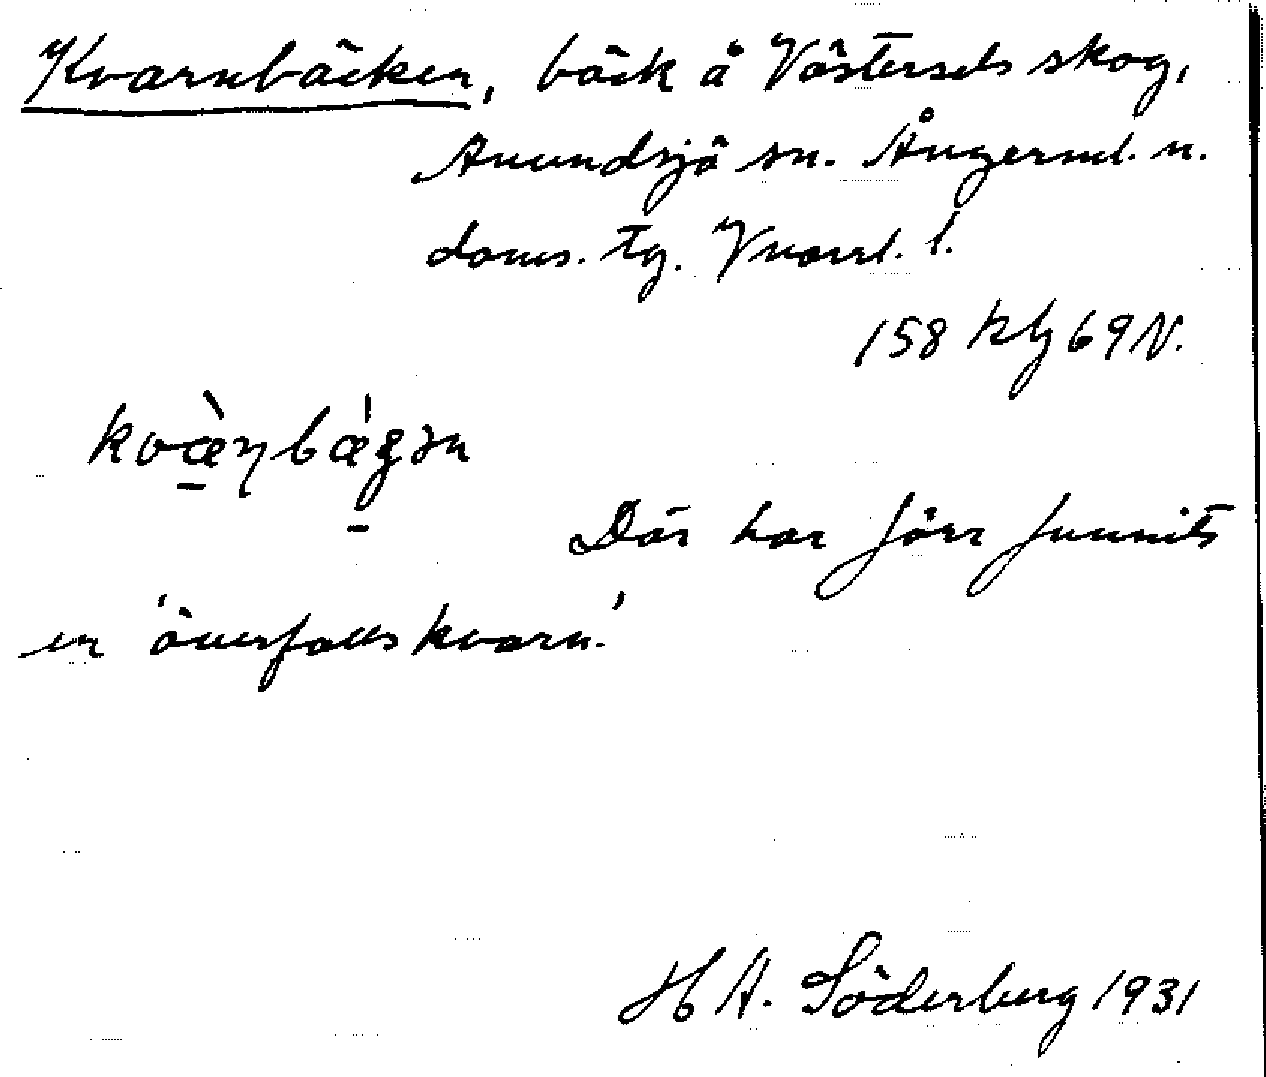 Kvarnbäcken, bäck å Västersels skog,
Anundsjö sn. Ångerml. n.
doms. tg. Vnorrl. l.
158 klg 69 N.
kvæ̀ɳbǽgən
Där har förr funnits
en 'överfallskvarn.'
H A. Söderberg 1931